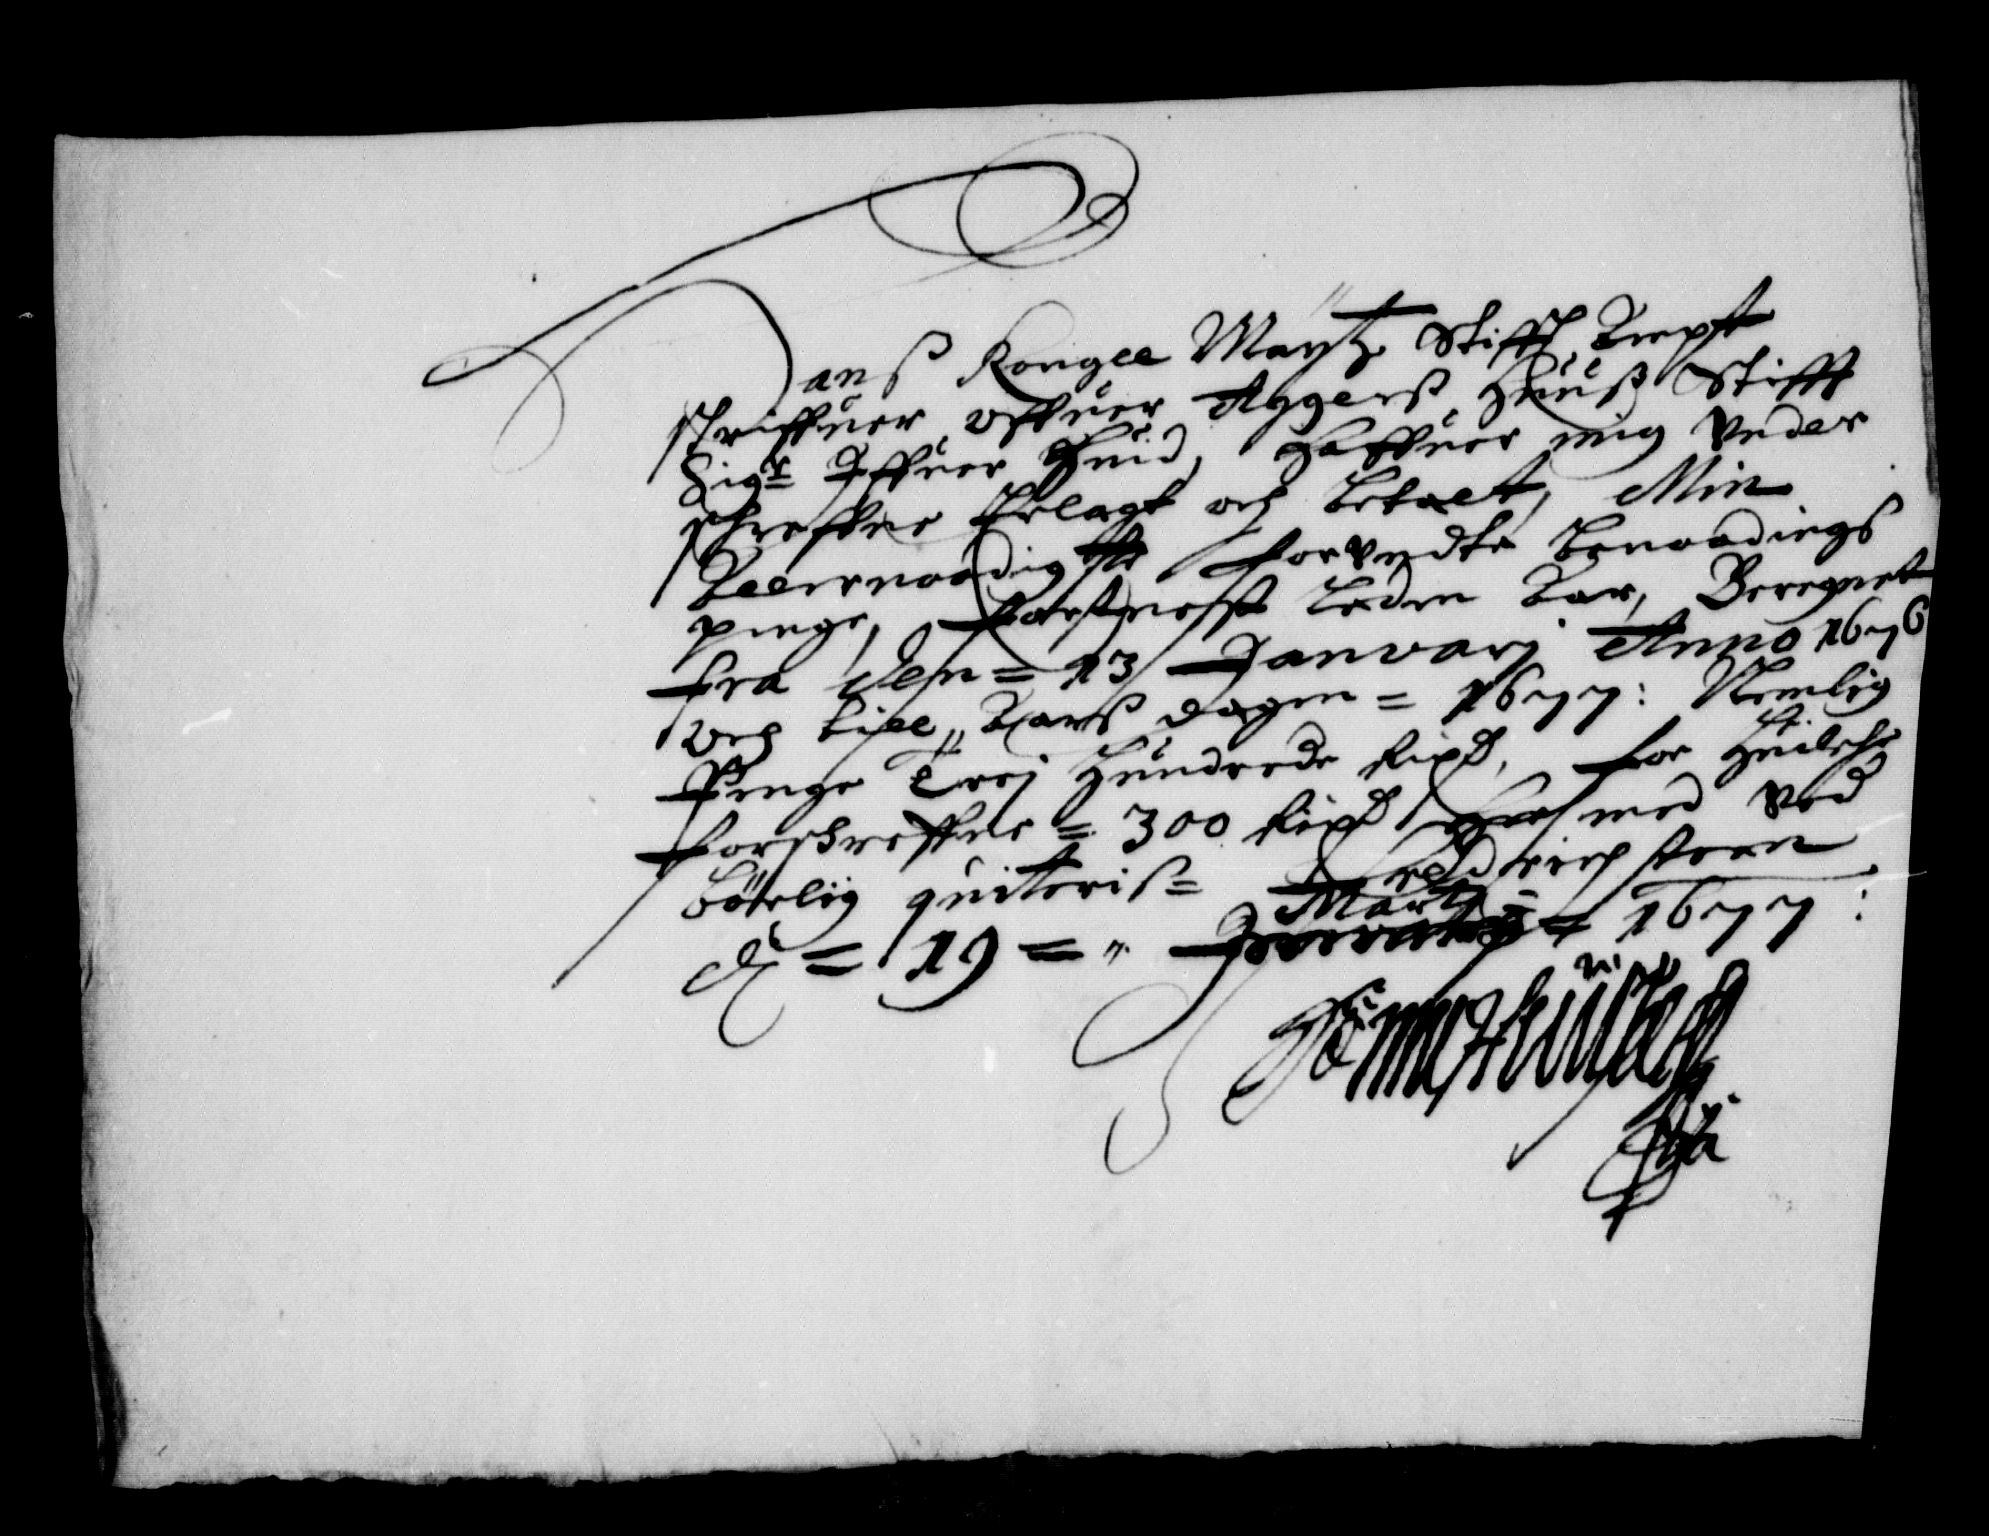 Hans Kongel Maytz Stiffz Ampt
schriffuer offuer Aggerß Huuß Stifft
Sigr Iffuer Huid, Haffuer mig Under
schreffne Erlagt och betalt, Min
Allernaadigste forundte benaadings
penge, forst nest leden Aar, Beregnet
fra den = 13 Januarj Anno 1676
och till Aarß dagen = 1677: Nemlig
Penge Trej Hundrede Rixd, for Huilche
forschreffne = 300 Rixd Hermed Ved
börlig quiteris= Fredrichsteen
d = 19 = Marty = 1677: